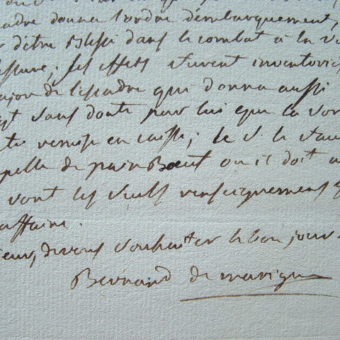 cadre donna l'ordre d'embarquement,
d'être Blessé dans le combat à la
blessure; ses effets furent inventorié
major de l'escadre qui donna aussi
est sans doute pour lui que la
été remise en caisse; le S. le
appelle de painBœuf ou il doit a
vont les seuls renseignements q
affaire.
eur, de vous souhaiter le bon jour
Bernard de marigny